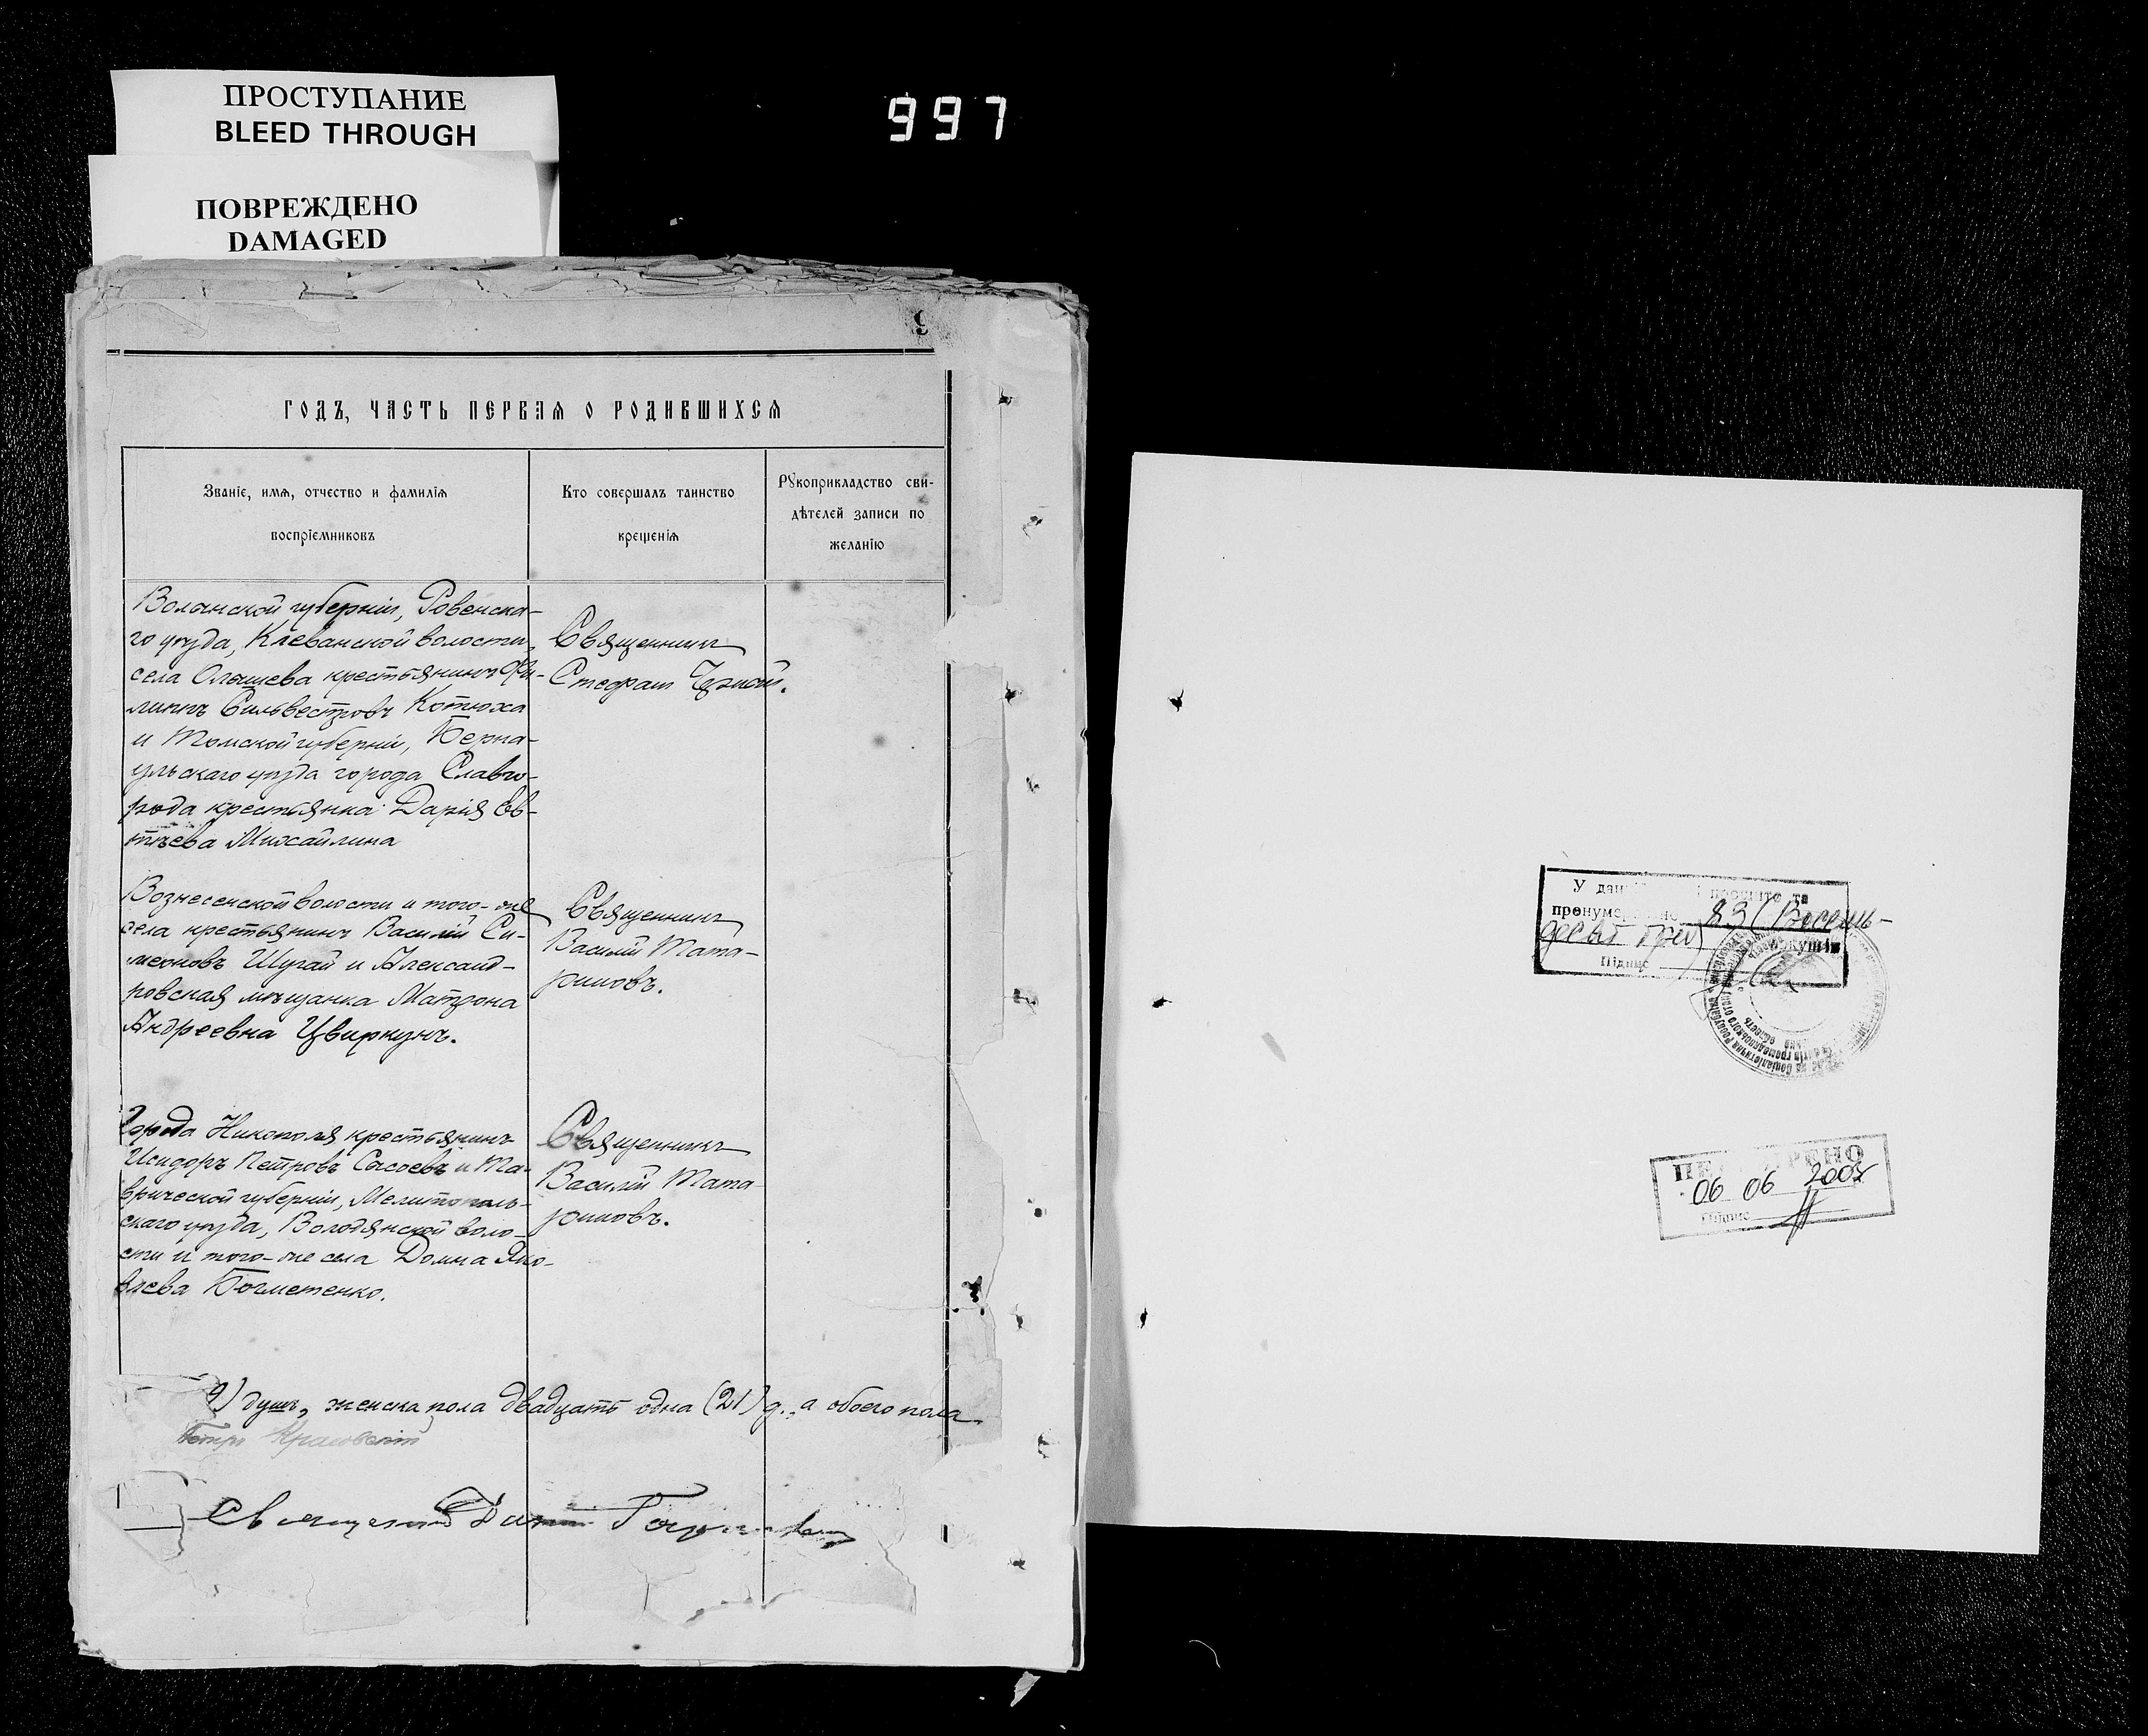 ПРОСТУПАНИЕ
BLEED THROUGH
997
ПОВРЕЖДЕНО
DAMAGED
9
ГОДЪ, ЧАСТЬ ПЕРВАЯ О РОДИВШИХСЯ
Званіе, имя, отчество и фамилія
воспріемниковъ
Кто совершалъ таинство
крещенія
Рукоприкладство сви-
дѣтелей записи по
желанію
Волынской губерніи, Ровенска-
го уѣзда, Клеванской волости,
села Олышева крестьянинъ Фи-
липпъ Сильвестровъ Котюха
и Томской губерніи, Берна-
ульскаго уѣзда города Славго-
рода крестьянка Дарія Ев-
тѣева Михайлина
Священникъ
Стефанъ
Вознесенской волости и того-же
села крестьянинъ Василій Си-
меоновъ Шугай и Александ-
ровская мѣщанка Матрона
Андреевна Цвиркунъ.
Священникъ
Василій Мата-
риновъ.
Города Никополя крестьянинъ
Исидоръ Петровъ Сысоевъ и Та-
врической губерніи, Мелитополь-
скаго уѣзда, Володянской воло-
сти и того-же села Домна Яко-
влева Богметенко.
Священникъ
Василій Мата-
риновъ.
9) душъ, женска пола двадцать одна (21) д., а обоего пола
Петръ Красовскій
Священникъ
У та
пронумеровано 83 (Восемь-
десят три)
Підпис
ПЕРЕВІРЕНО
06 06 2002
Підпис